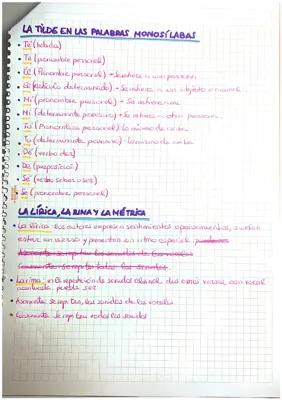 LA TILDE EN LAS PALABRAS MONOSÍLABAS
• Té (bebida)
• Te (pronombre personal)
• Él (Pronombre personal) → Se refiere a una persona.
• El (artículo determinado) → Se refiere a un objeto o animal.
• Mí (pronombre personal) → Se refiere a mí.
• Mi (determinante posesivo) → Se refiere a otra persona.
• Tú (Pronombre personal) Lo mismo de antes.
• Tu (determinante posesivo) - Lo mismo de antes.
• Dé (verbo dar)
• De (preposición)
• Sé (verbo saber o ser)
• Se (pronombre personal)
LA LÍRICA, LA RIMA Y LA MÉTRICA
• La lírica: los autores expresan sentimientos o pensamientos, suelen
estar en verso y presentan un ritmo especial.
• La rima: es la repetición de sonidos al final de dos o más versos, con vocal
acentuada, puede ser
• Asonante: Se repiten los sonidos de las vocales
• Consonante: Se repiten todos los sonidos